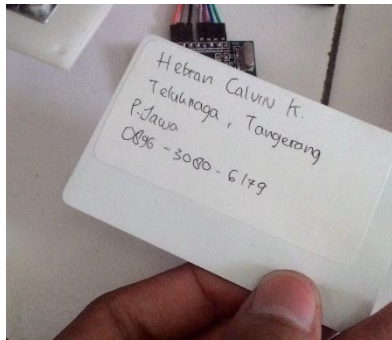 Hebran Calvin K.
Teluknaga, Tangerang
P.Jawa
0896-3080-6179